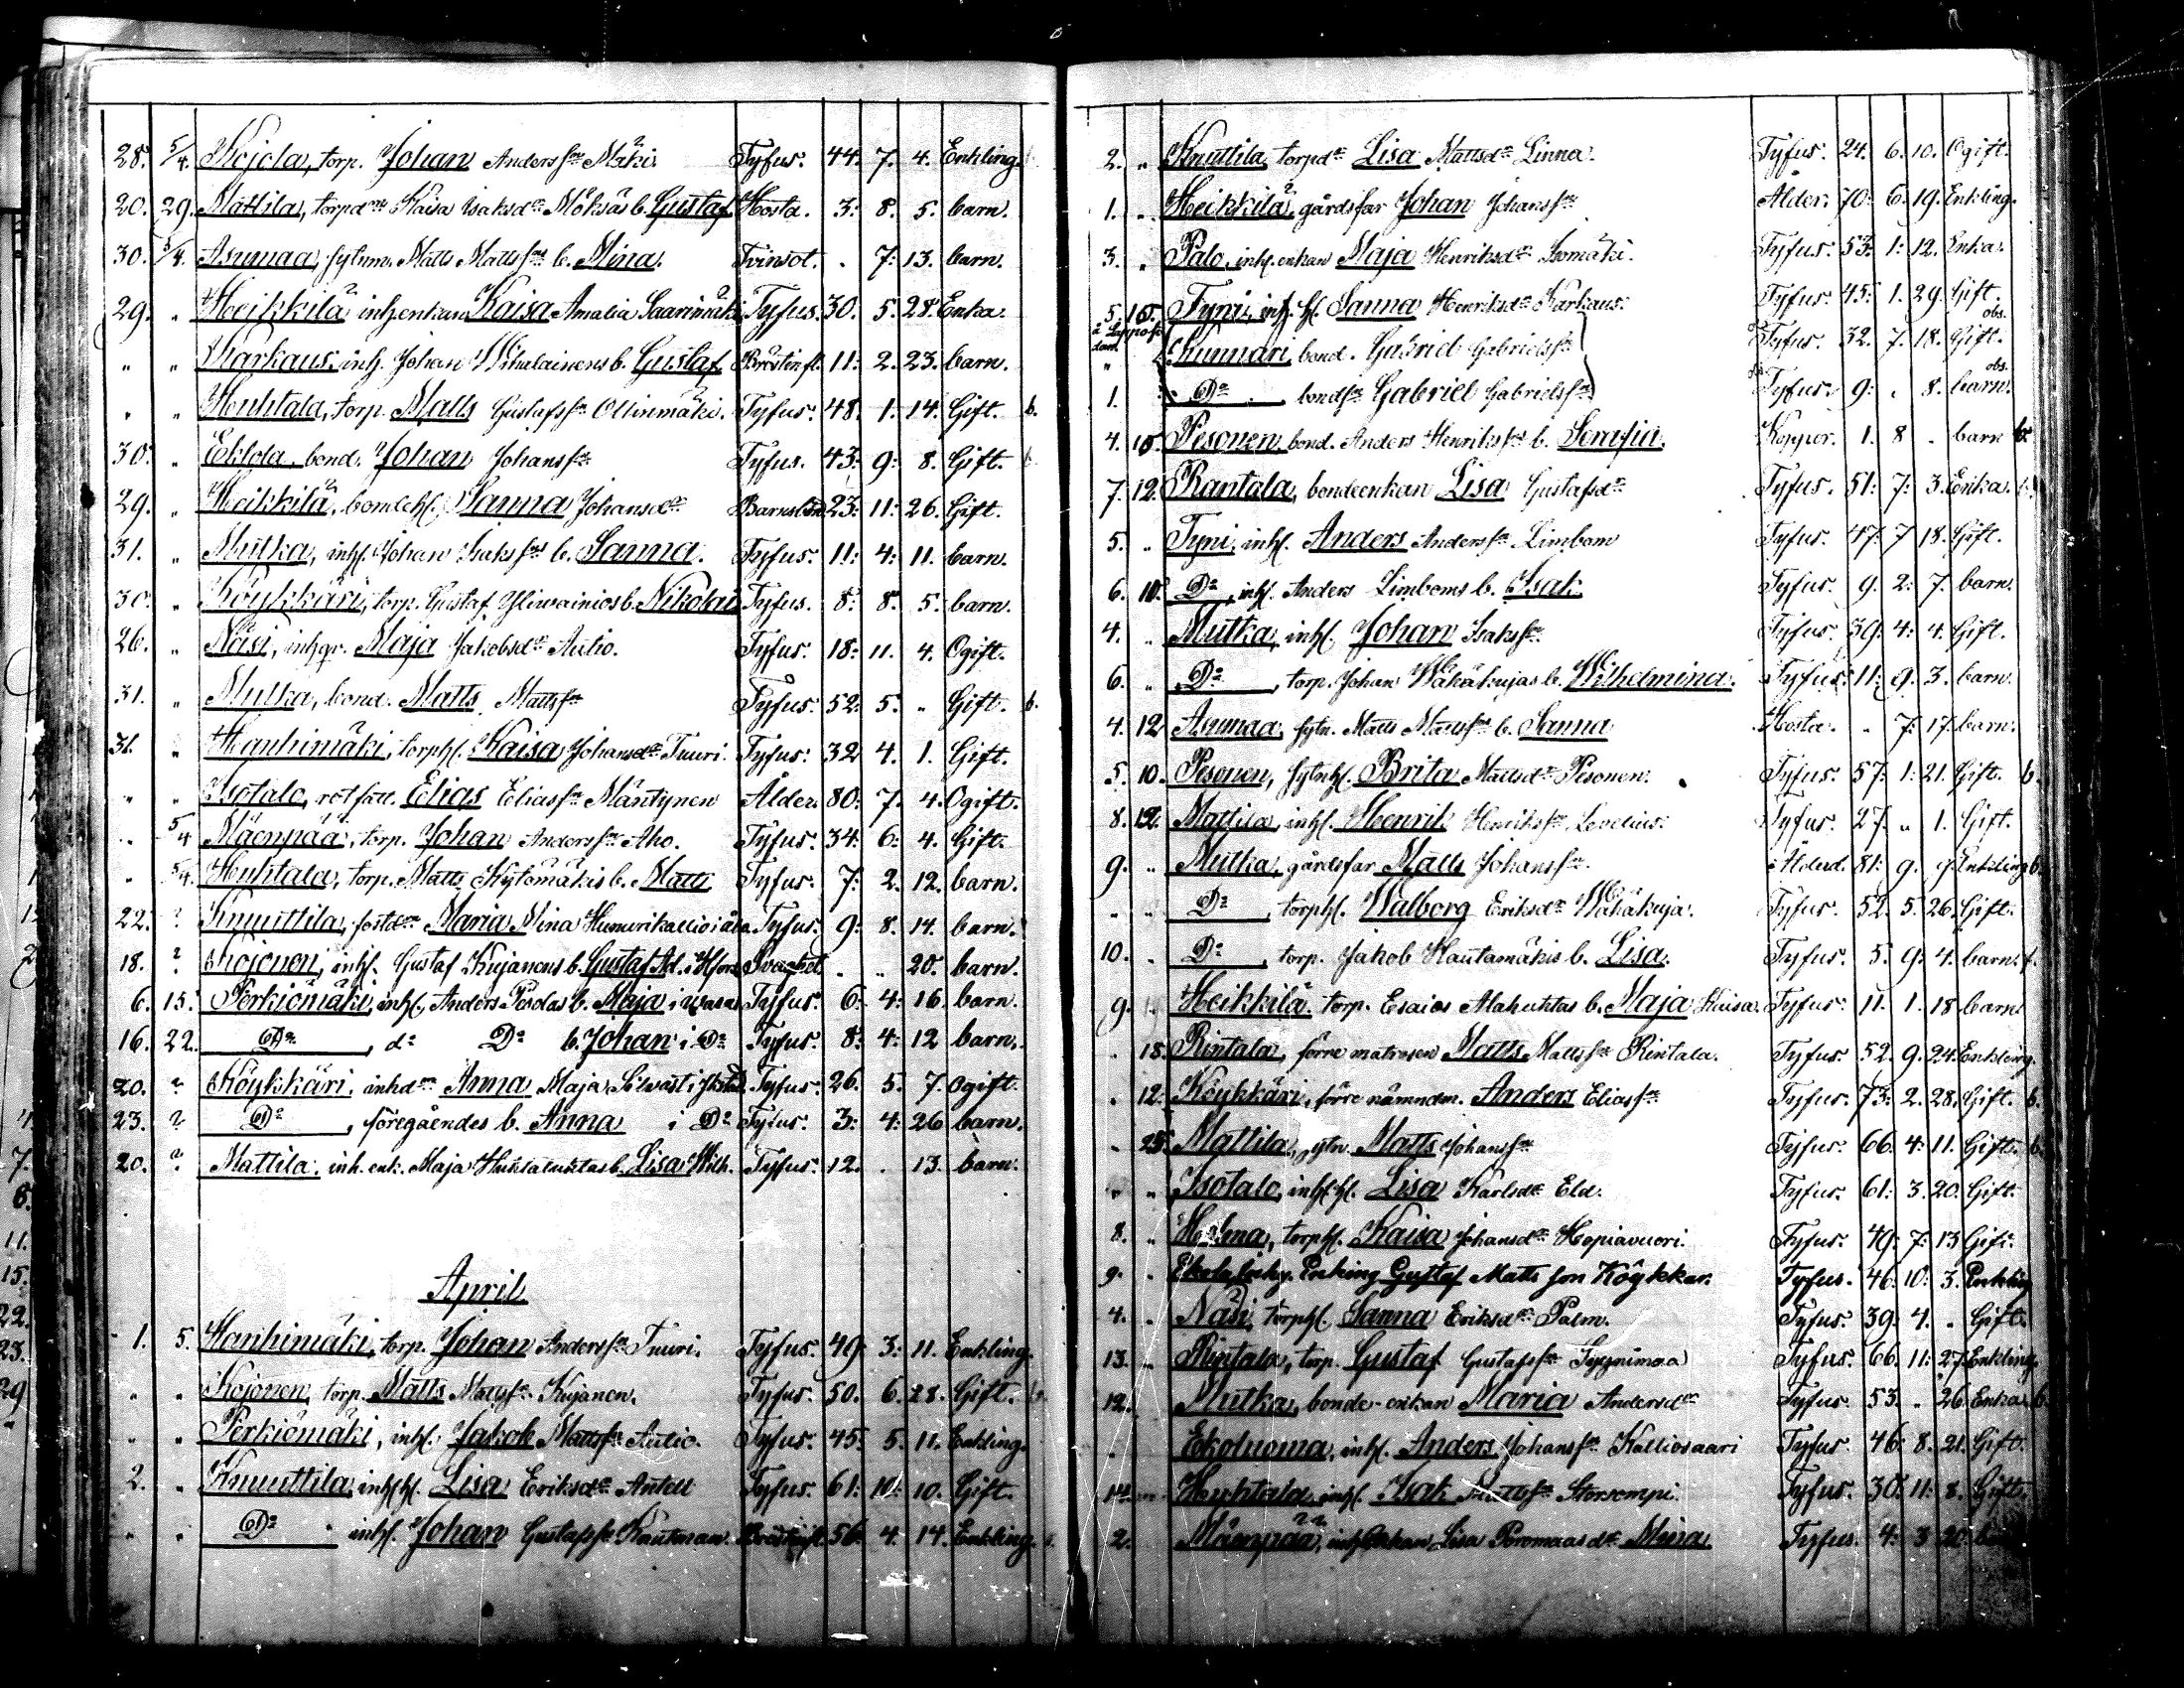 28. 5/4. Kojola, torp. Johan Anders sn Mäki. Tyfus. 44. 7. 4. Enkling.
20. 29. Mattila, torpdr Kaisa Isaksdr Möksäs b. Gustaf Hosta. 3: 8. 5. barn.
30. 5/4. Asumaa, sytnm. Matts Mattssns b. Mina. Tvinsot. . 7: 13. barn.
29. " Heikkilä inh. enkan Kaisa Amalia Saarimäki Tyfus. 30. 5. 28. Enka.
" " Karkaus. inh. Johan Wihulainens b. Gustaf Bröstinfl. 11: 2. 23. barn.
" " Huhtala, torp. Matts Gustafssn Ollinmäki. Tyfus. 48. 1. 14. Gift. b.
30. " Eklola. bond. Johan Johanssn Tyfus. 43: 9: 8. Gift.
29. " Heikkilä, bondeh. Sanna Johansdr Barnsbörd 23: 11: 26. Gift.
31. " Mutka, inh. Johan Isakssns b. Sanna. Tyfus. 11: 4: 11. barn.
30. " Köykkäri, torp. Gustaf Yliwainios b. Nikolai Tyfus. 8: 8. 5. barn.
26. " Näsi, inhgr. Maja Jakobsdr Autio. Tyfus. 18: 11. 4. Ogift.
31. " Mutka, bond. Matts Mattssn Tyfus. 52. 5. " Gift. b.
31. " Hanhimäki, torph. Kaisa Johansdr Tuuri. Tyfus. 32 4. 1. Gift.
" " Isotalo, rotfatt. Elias Eliassn Mäntynen Ålder. 80: 7. 4. Ogift.
" 5/4 Mäenpää, torp. Johan Anderssn Aho. Tyfus. 34: 6: 4. Gift.
" 5/4. Huhtala, torp. Matts Kytömäkis b. Matts Tyfus. 7: 2. 12. barn.
22. ? Knuuttila, fostdr Maria Mina Tyfus. 9: 8. 14. barn.
18. ? Kojonen, inh. Gustaf Kujanens b. Gustaf Ad. i Hfors Svaghet . .. 20. barn.
6. 15. Perkiömäki, inh. Anders Perolas b. Maja i Wasa Tyfus. 6: 4: 16. barn.
16. 22. Do, do Do b. Johan i Do Tyfus. 8: 4: 12 barn.
20. ? Köykkäri. inhdr Anna Maja Tyfus. 26. 5. 7. Ogift.
23. ? Do, föregåendes b. Anna i Do Tyfus. 3: 4: 26 barn.
20. ? Mattila. inh. enk. Maja Huhtaluhtas b. Lisa Wilh. Tyfus. 12. . 13. barn.
April
1. 5. Hanhimäki, torp. Johan Anderssn Tuuri. Tyfus. 49: 3: 11. Enkling.
" " Kojonen, torp. Matts Mattssn Kujanen. Tyfus. 50. 6. 28. Gift.
" " Perkiömäki, inh. Jakob Mattssn Autio. Tyfus. 45: 5. 11. Enkling.
2. " Knuuttila, inhh. Lisa Eriksdr Antell Tyfus. 61: 10: 10. Gift.
" " Do inh. Johan Gustafssn Rautman. Bröstinfl. 56. 4. 14. Enkling.
2. " Knuttila, torpdr Lisa Mattsdr Linna. Tyfus. 24. 6. 10. Ogift.
1. " Heikkilä, gårdsfar Johan Johanssn Ålder. 70: 6. 19. Enkling.
3. " Palo, inh. enkan Maja Henriksdr Isomäki. Tyfus. 53: 1: 12. Enka.
5. 15. Tyni, inh. h. Sanna Henriksdr Karkaus. Tyfus. 45: 1. 29. Gift.
i Lappo dom. Kunnari, bond. Gabriel Gabrielssn Tyfus. 32. 7. 18. Gift. obs.
1. Do bondsn Gabriel Gabrielssn Tyfus. 9: . 8. barn. obs.
4. 15. Pesonen, bond. Anders Henrikssns b. Serafia. Koppor. 1. 8 . barn b.
7. 12. Rantala, bondeenkan Lisa Gustafsdr Tyfus. 51: 7: 3. Enka.
5. " Tyni, inh. Anders Anderssn Limbom Tyfus. 47: 7 18. Gift.
6. 10. Do, inh. Anders Limboms b. Isak. Tyfus. 9. 2: 7. barn.
4. " Mutka, inh. Johan Isakssn Tyfus. 39: 4: 4. Gift.
6. " Do, torp. Johan Wähäkujas b. Wilhelmina. Tyfus. 11: 9. 3. barn.
4. 12 Asumaa, sytn. Matts Mattssns b. Sanna Hosta. . 7: 17. barn.
5. 10. Pesonen, sytnh. Brita Mattsdr Pesonen. Tyfus. 57: 1: 21. Gift. b.
8. 12. Mattila, inh. Henrik Henrikssn Levelius. Tyfus. 27. " 1. Gift.
9. " Mutka, gårdsfar Matts Johanssn Ålderd. 81: 9. 9. Enkling b.
" " Do, torph. Walborg Eriksdr Wähäkuja. Tyfus. 52. 5. 26. Gift.
10. " Do, torp. Jakob Hautamäkis b. Lisa. Tyfus. 5. 9. 4. barn.
9. " Heikkilä. torp. Esaias Alahuhtas b. Maja Kaisa. Tyfus. 11. 1. 18 barn
. 15. Rintala, förre matrosen Matts Mattssn Rintala. Tyfus. 52. 9. 24. Enkling.
. 12. Köykkäri, förre nämndm. Anders Eliassn Tyfus. 73: 2. 28. Gift. b.
. 25. Mattila, sytn. Matts Johanssn Tyfus. 66. 4: 11. Gift. b.
" " Isotalo, inh. h. Lisa Karlsdr Eld. Tyfus. 61: 3. 20. Gift.
8. " torph. Kaisa Johansdr Hopiavuori. Tyfus. 49. 7: 13 Gift.
9. " Ekola Enking Gustaf Matts son Köykkär. Tyfus. 46. 10: 3. Enkling
4. " Näsi, torph. Sanna Eriksdr Palm. Tyfus. 39. 4. . Gift.
13. " Rintala, torp. Gustaf Gustafssn Tyynimaa Tyfus. 66. 11: 27. Enkling.
12. Mutka, bonde-enkan Maria Andersdr Tyfus. 53. . 26. Enka b.
Ekoluoma, inh. Anders Johanssn Kalliosaari Tyfus. 46. 8. 21. Gift.
14. Huhtala, inh. Isak Mattssn Storsempi. Tyfus. 30. 11: 8. Gift.
2. Mäenpää, inh. enkan Lisa Poromaas dr Mina Tyfus. 4: 3 20.